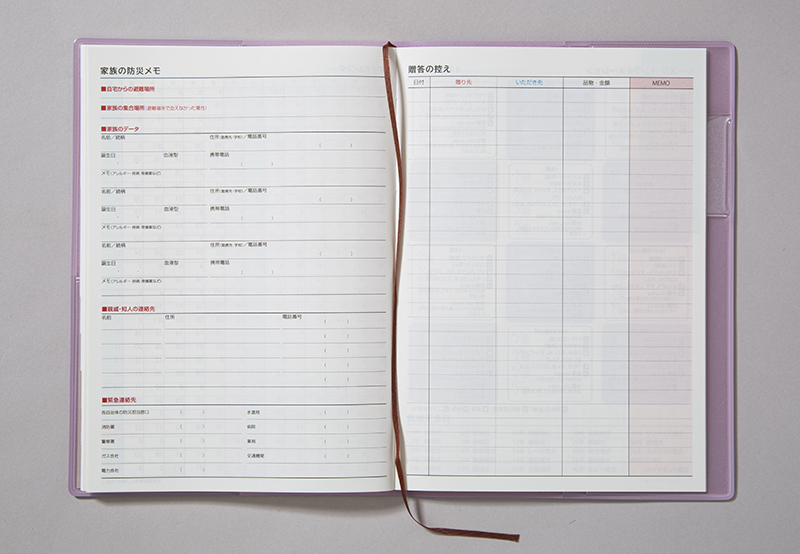 家族の防災メモ
■自宅からの避難場所
■家族の集合場所(避難場所で会えなかった場合)
■家族のデータ
名前/続柄 住所(勤務先・学校)/電話番号
( )
誕生日 血液型 携帯電話
・ ・ ( )
メモ(アレルギー・持病・常備薬など)
名前/続柄 住所(勤務先・学校)/電話番号
( )
誕生日 血液型 携帯電話
・ ・ ( )
メモ(アレルギー・持病・常備薬など)
名前/続柄 住所(勤務先・学校)/電話番号
( )
誕生日 血液型 携帯電話
・ ・ ( )
メモ(アレルギー・持病・常備薬など)
■親戚・知人の連絡先
名前 住所 電話番号
( )
( )
( )
( )
( )
■緊急連絡先
各自治体の防災担当窓口 ( ) 水道局 ( )
消防署 ( ) 病院 ( )
警察署 ( ) 薬局 ( )
ガス会社 ( ) 交通機関 ( )
電力会社 ( )
贈答の控え
日付 贈り先 いただき先 品物・金額 MEMO